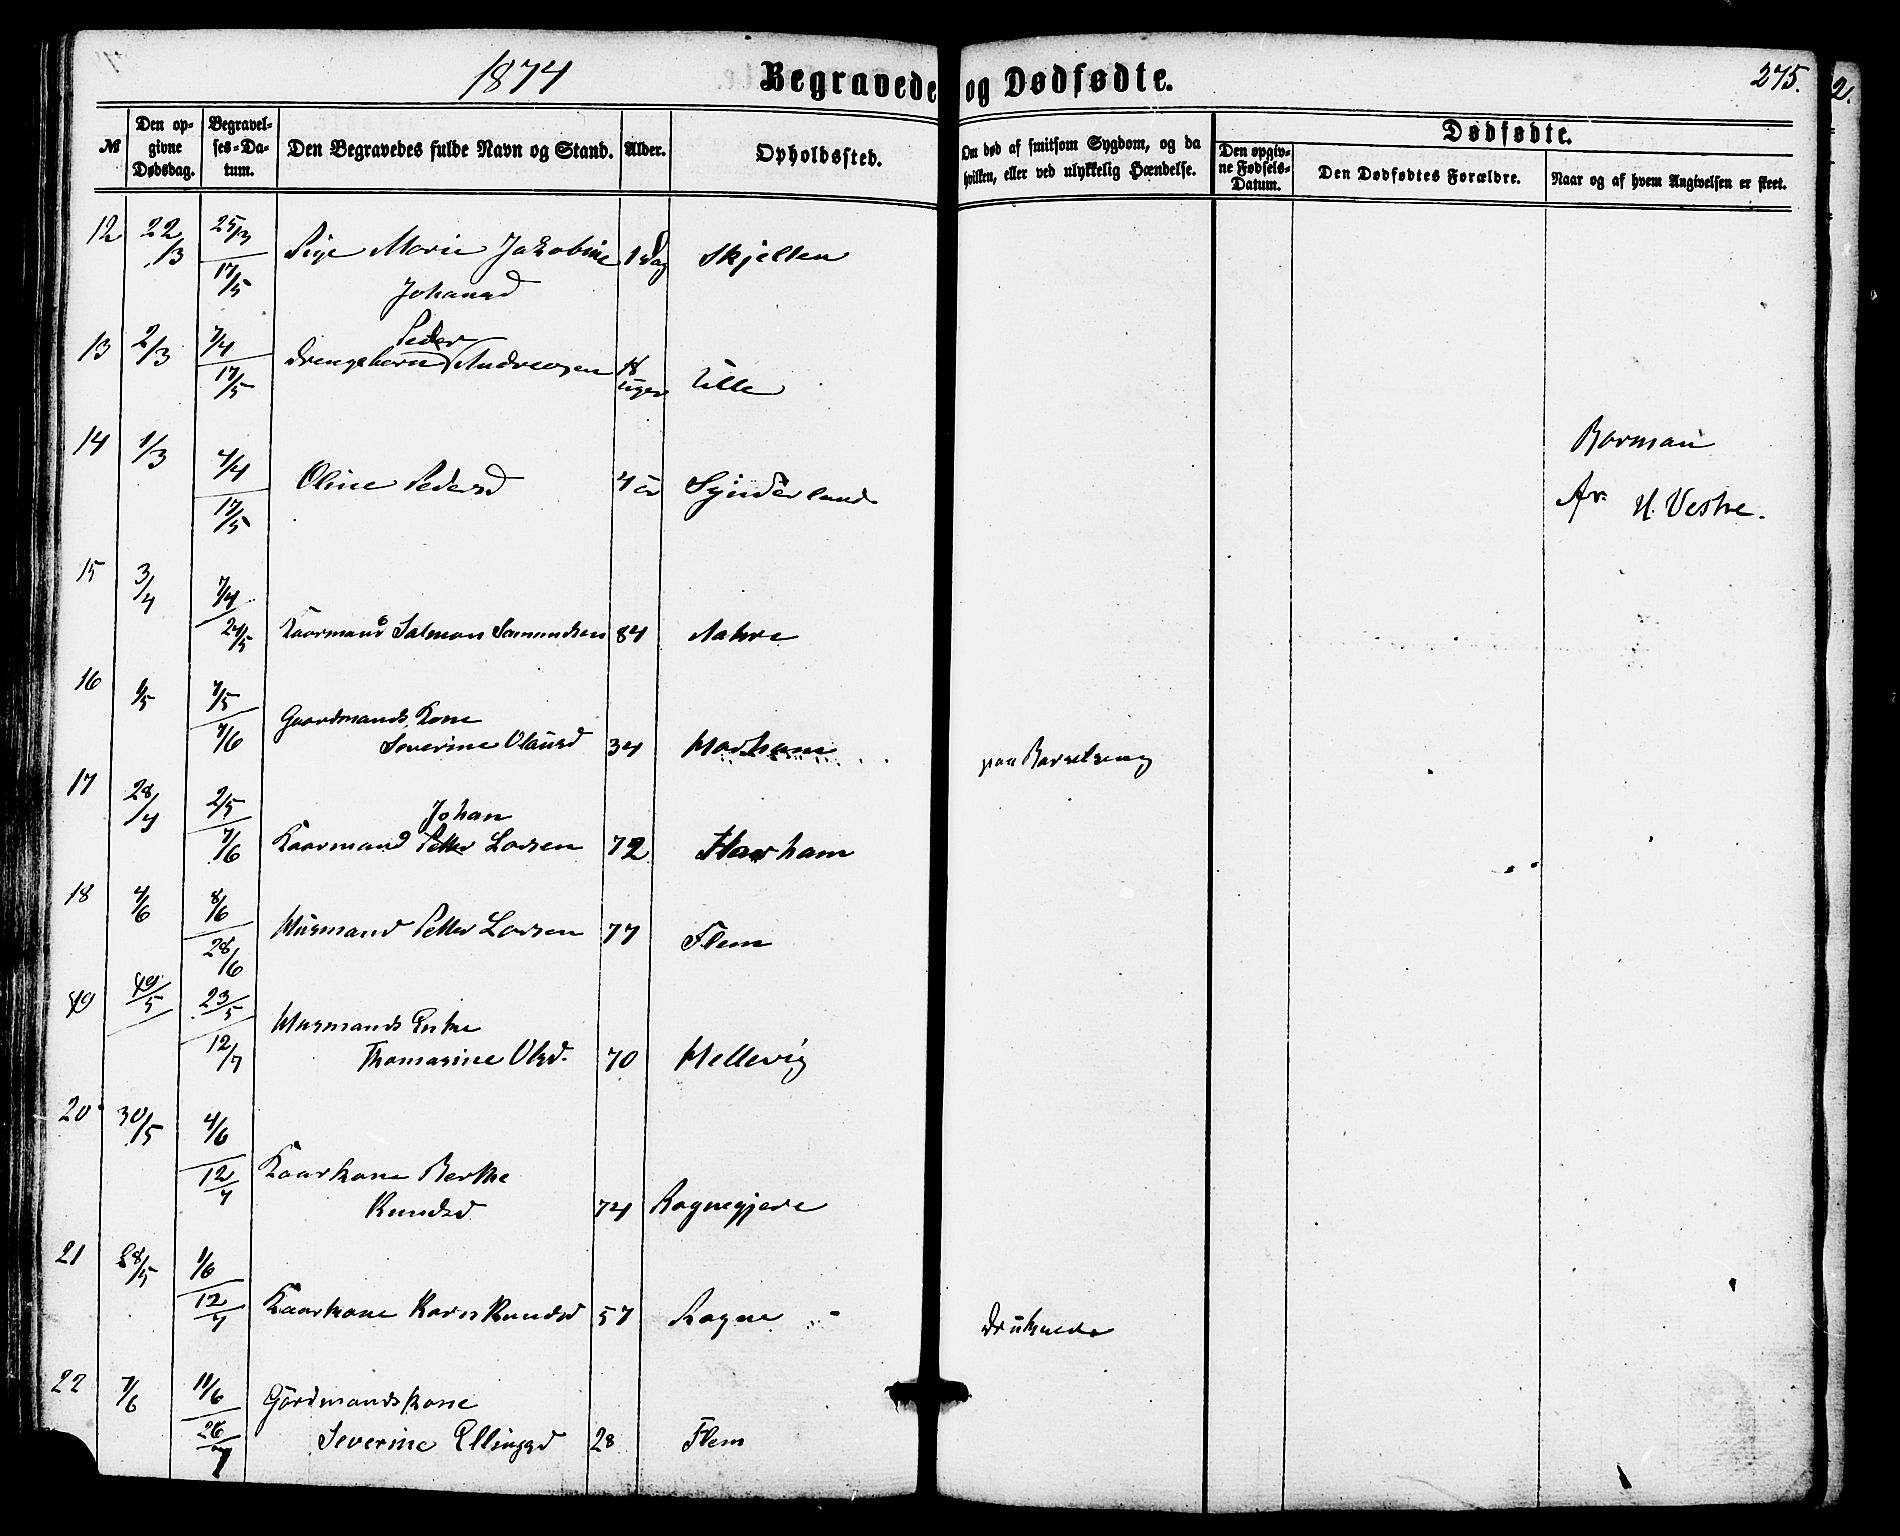 1874 Begravede og Dødfødte. 275.
№ Den opgivne Dødsdag. Begravelses-Datum. Den Begravedes fulde Navn og Stand. Alder. Opholdssted. Om død af smitsom Sygdom, og da hvilken, eller ved ulykkelig Hændelse. Dødfødte.
Den opgivne Fødsels-Datum. Den Dødfødtes Forældre. Naar og af hvem Angivelsen er skeet.
12 22/3 25/3 17/5 Pige Marie Jakobine 1 Dag Skjelten
Johansd
13 2/3 7/4 17/5 Drengebarn Peder Andreasen 18 Uger Ulle
14 1/3 7/4 17/5 Oline Pedersd 4 år Synderland
Borman
H. Vestre.
15 3/4 7/4 24/5 Kaarmand Salmon Samundsen 84 Aakre
16 1/5 7/5 7/6 Gaardmands Kone
Severine Olausd 34 Harham paa Barselseng
17 28/4 2/5 7/6 Kaarmand Johan Petter Larsen 72 Harham
18 4/6 8/6 28/6 Husmand Petter Larsen 77 Flem
19 19/5 23/5 12/7 Husmands Enke
Thomasine Olsd. 70 Hellevig
20 30/5 4/6 12/7 Kaarkone Berthe
Knudsd 74 Rognegjere
21 28/5 1/6 12/7 Kaarkone Karen Knudsd 57 Rogne Druknede
22 7/6 11/6 26/7 Gårdmandskone
Severine Ellingsd 28 Flem
2.